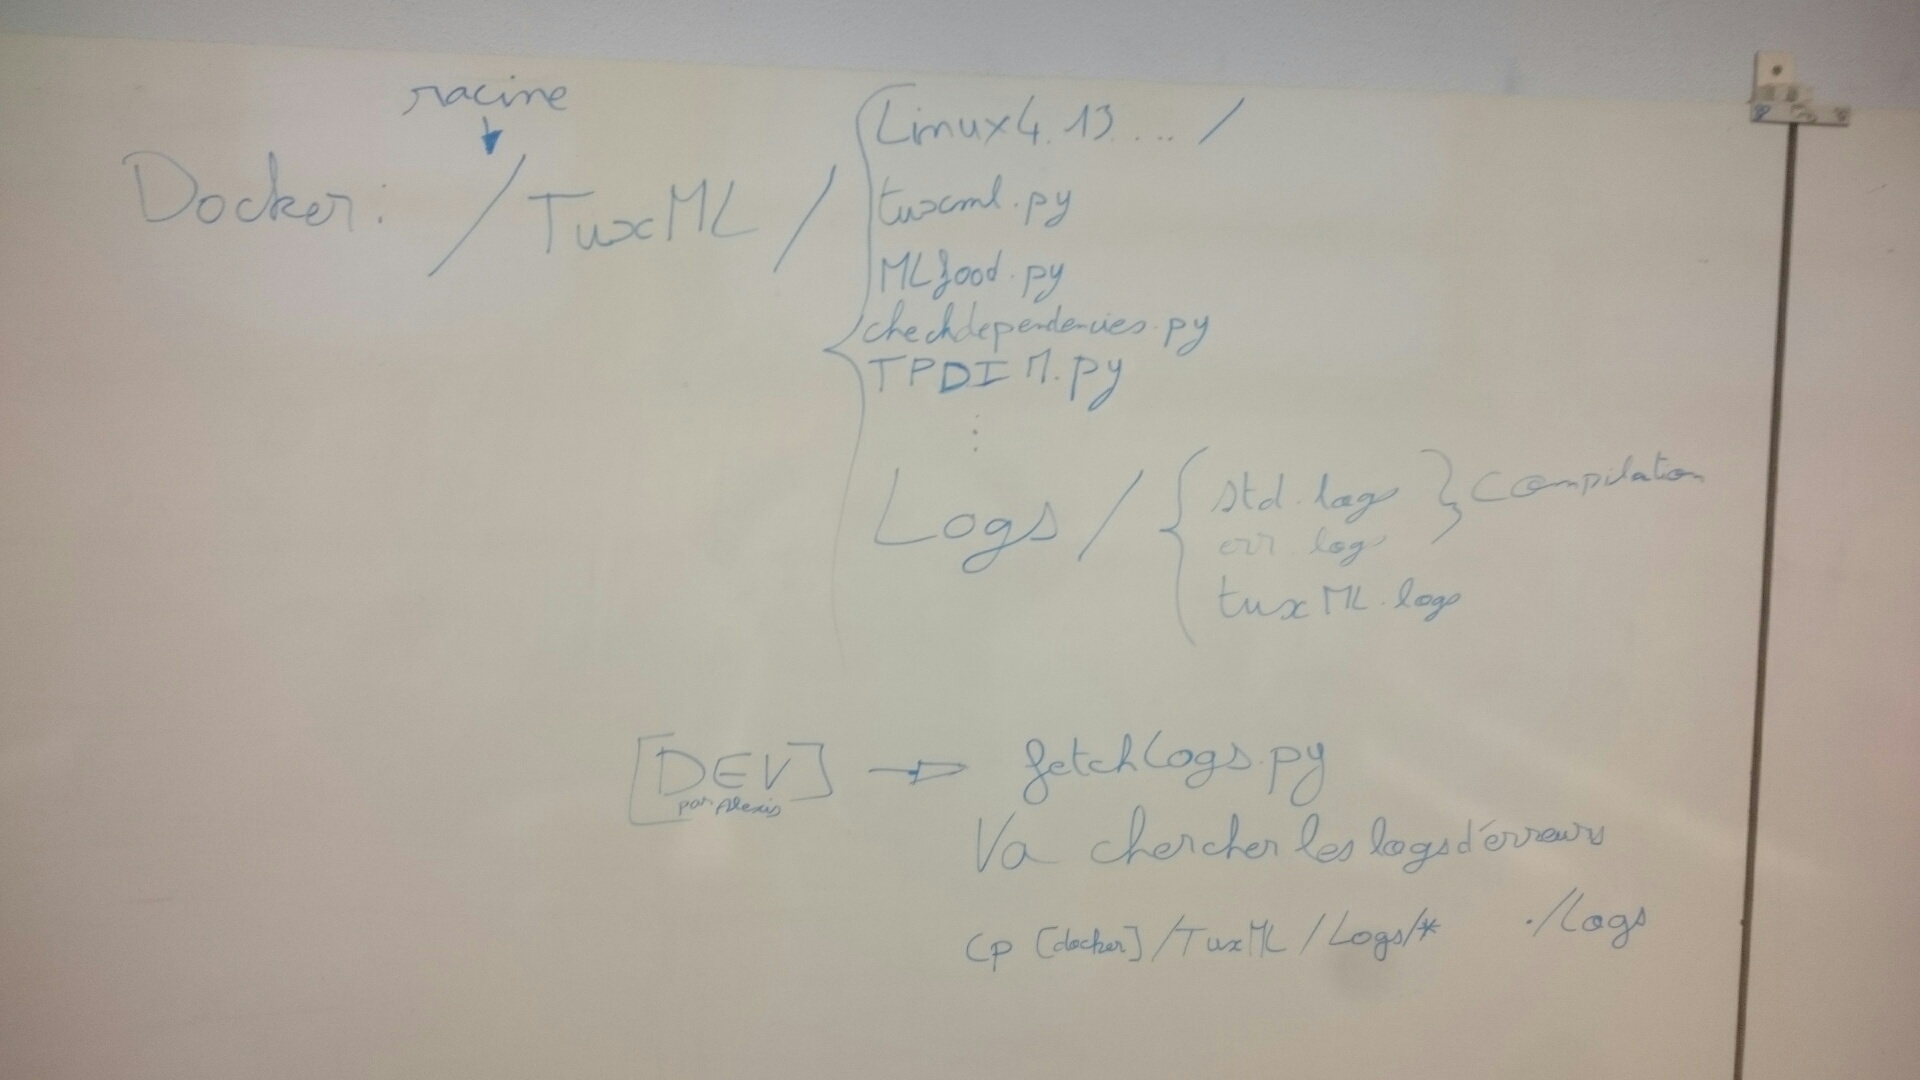 racine
Docker: / TuxML / { Linux4.13.... /
tuxml.py
MLfood.py
checkdependencies.py
TPDIM.py
⋮
Logs / { std.logs } Compilation
err.logs
tuxML.logs
[DEV] → fetchLogs.py
par Alexis
Va chercher les logs d'erreurs
cp [docker]/TuxML/Logs/* ./Logs